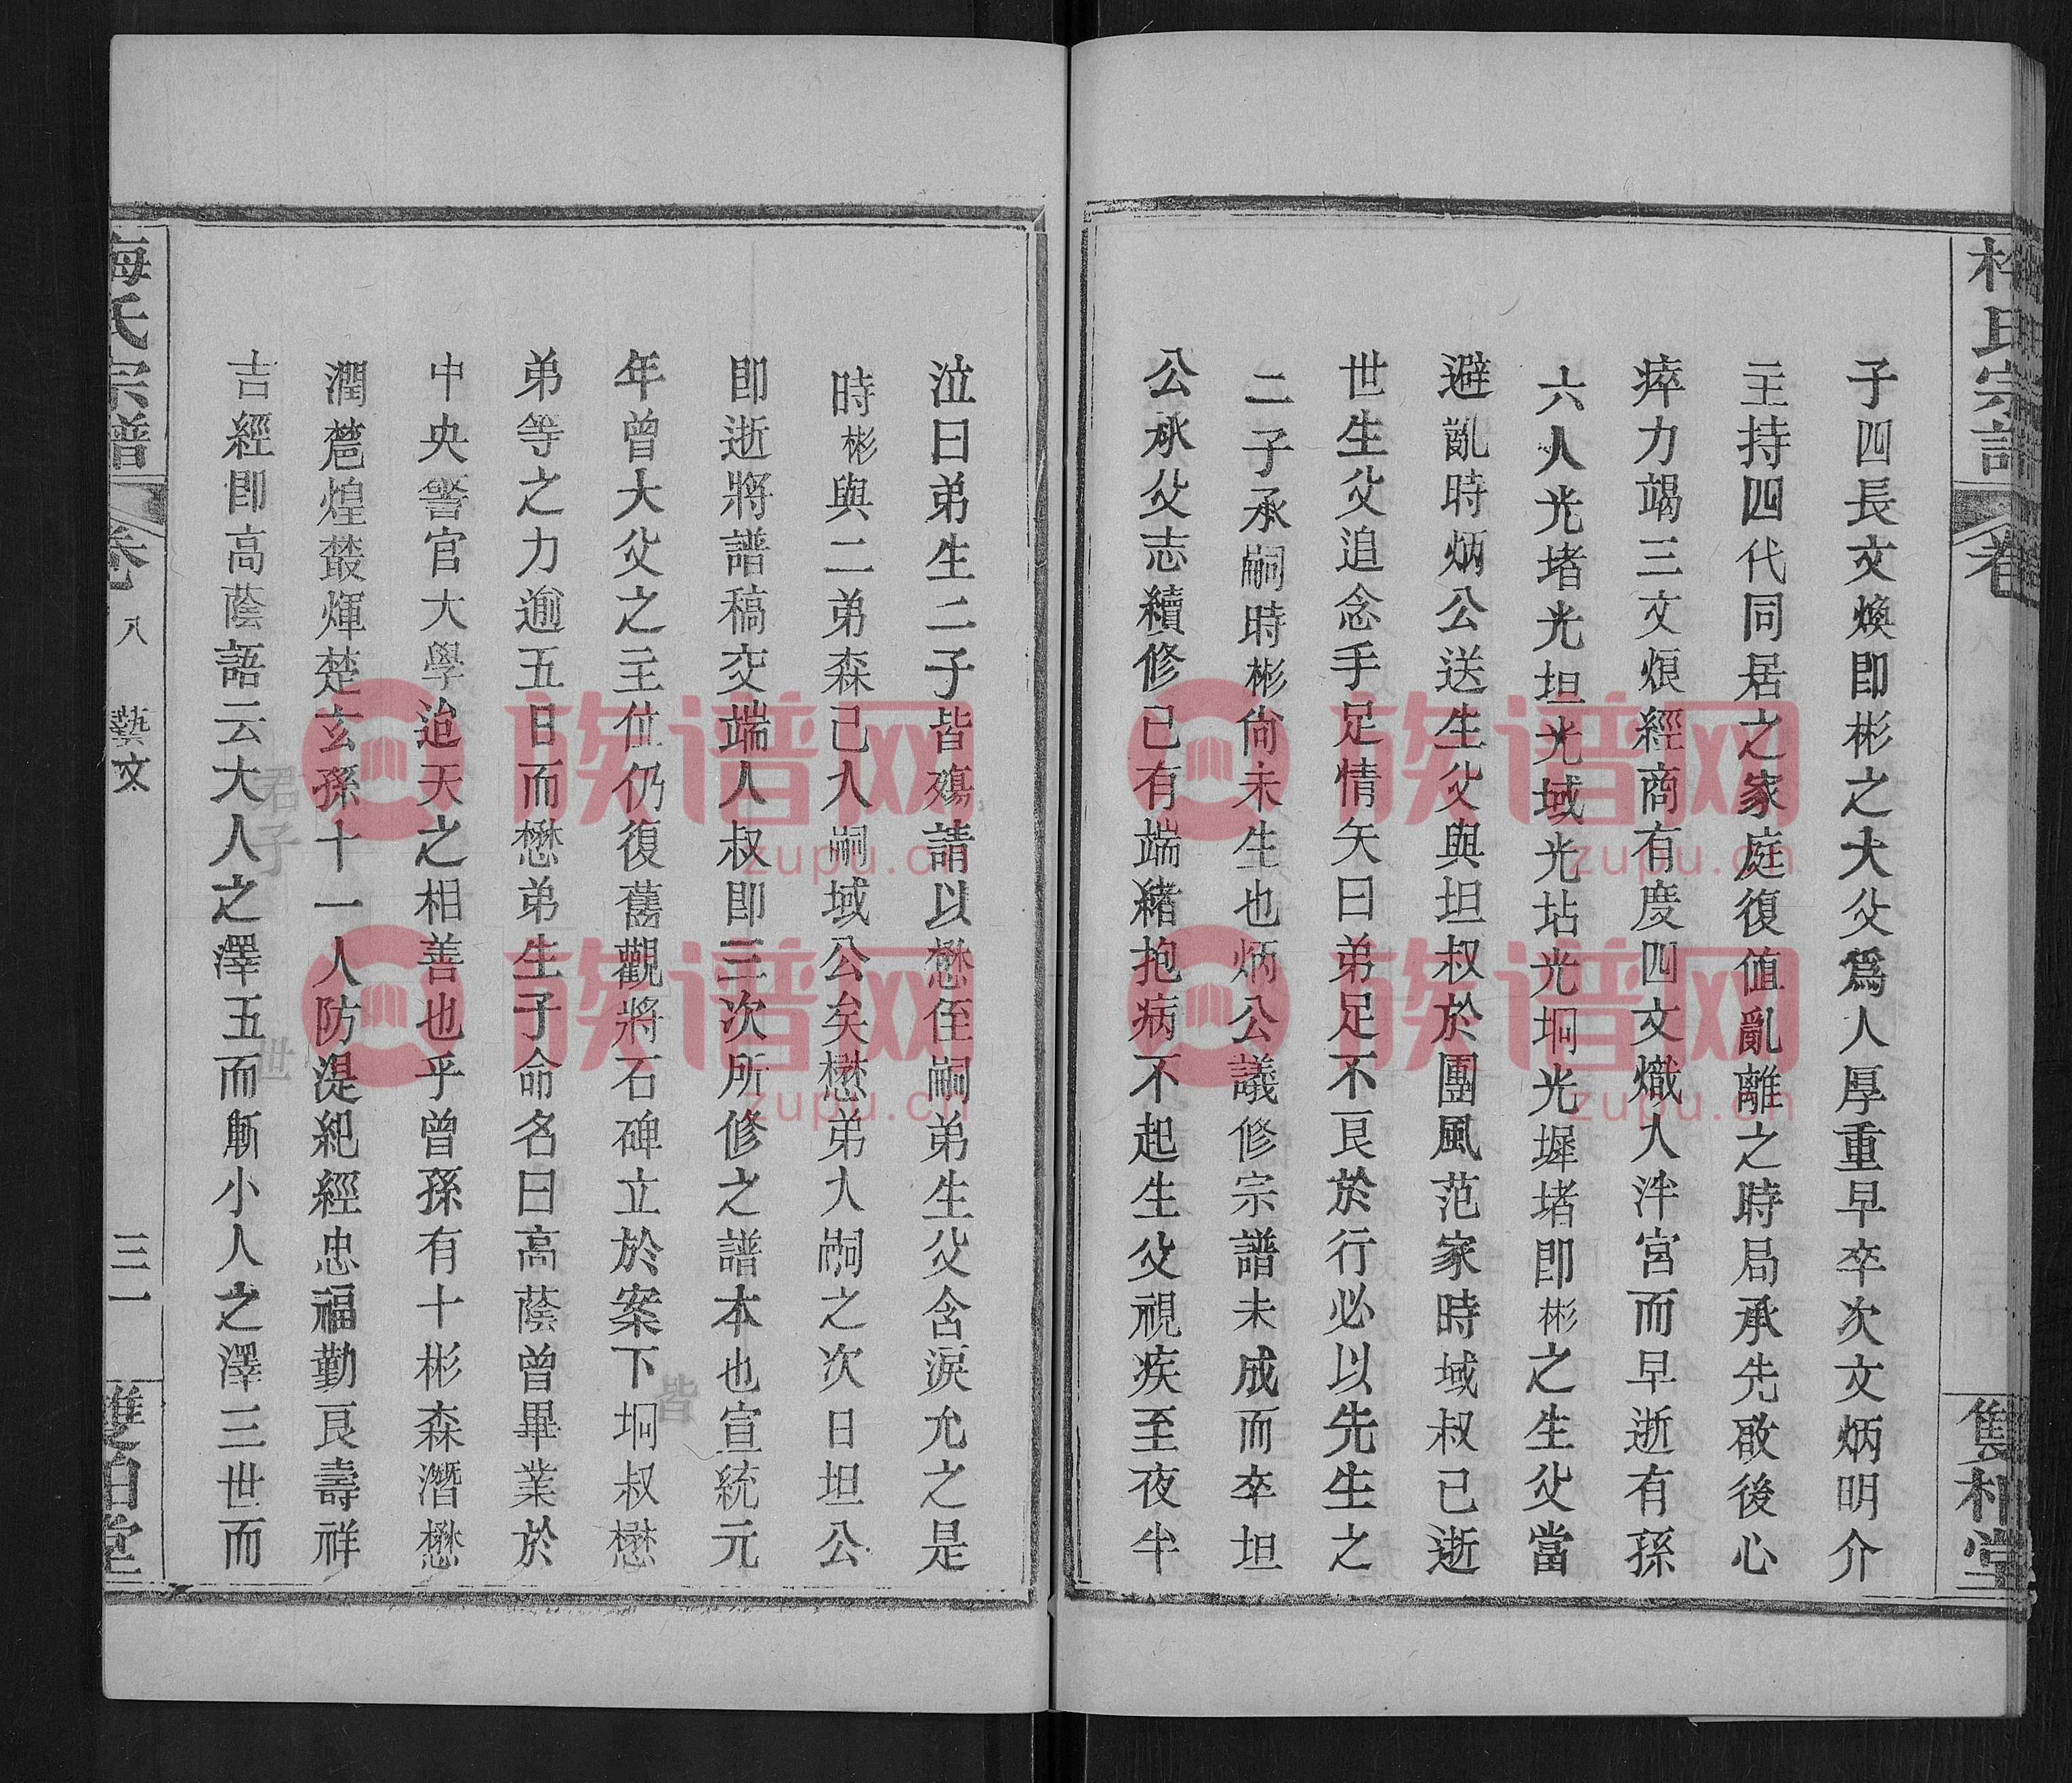 子四長文煥即彬之大父爲人厚重早卒次文炳明介
主持四代同居之家庭復值亂離之時局承先啟後心
瘁力竭三文煩經商有度四文熾人泮宮而早逝有孫
六人光堵光坦光域光坫光坰光墀堵即彬之生父當
避亂時炳公送生父與坦叔於團風范家時域叔已逝
世生父追念手足情矢曰弟足不艮於行必以先生之
二子承嗣時彬尙未生也炳公議修宗譜未成而卒坦
公承父志續修已有端緒抱病不起生父視疾至夜半
雙柏堂
泣曰弟生二子皆殤請以懋侄嗣弟生父含淚允之是
時彬與二弟森已入嗣域公矣懋弟入嗣之次日坦公
即逝將譜稿交端人叔即三次所修之譜本也宣統元
年曾大父之主位仍復舊觀將石碑立於案下坰叔懋
弟等之力逾五日而懋弟生子命名曰高蔭曾畢業於
中央警官大學迨天之相善也乎曾孫有十彬森潛懋
潤蒀煌蕞煇楚玄孫十一人防湜紀經忠福勤艮壽祥
吉經即高蔭語云大人之澤五而斬小人之澤三世而
梅氏宗譜 卷八 藝文 三一 雙柏堂
zupu.cn
族谱网
zupu.cn
族谱网
zupu.cn
族谱网
zupu.cn
族谱网